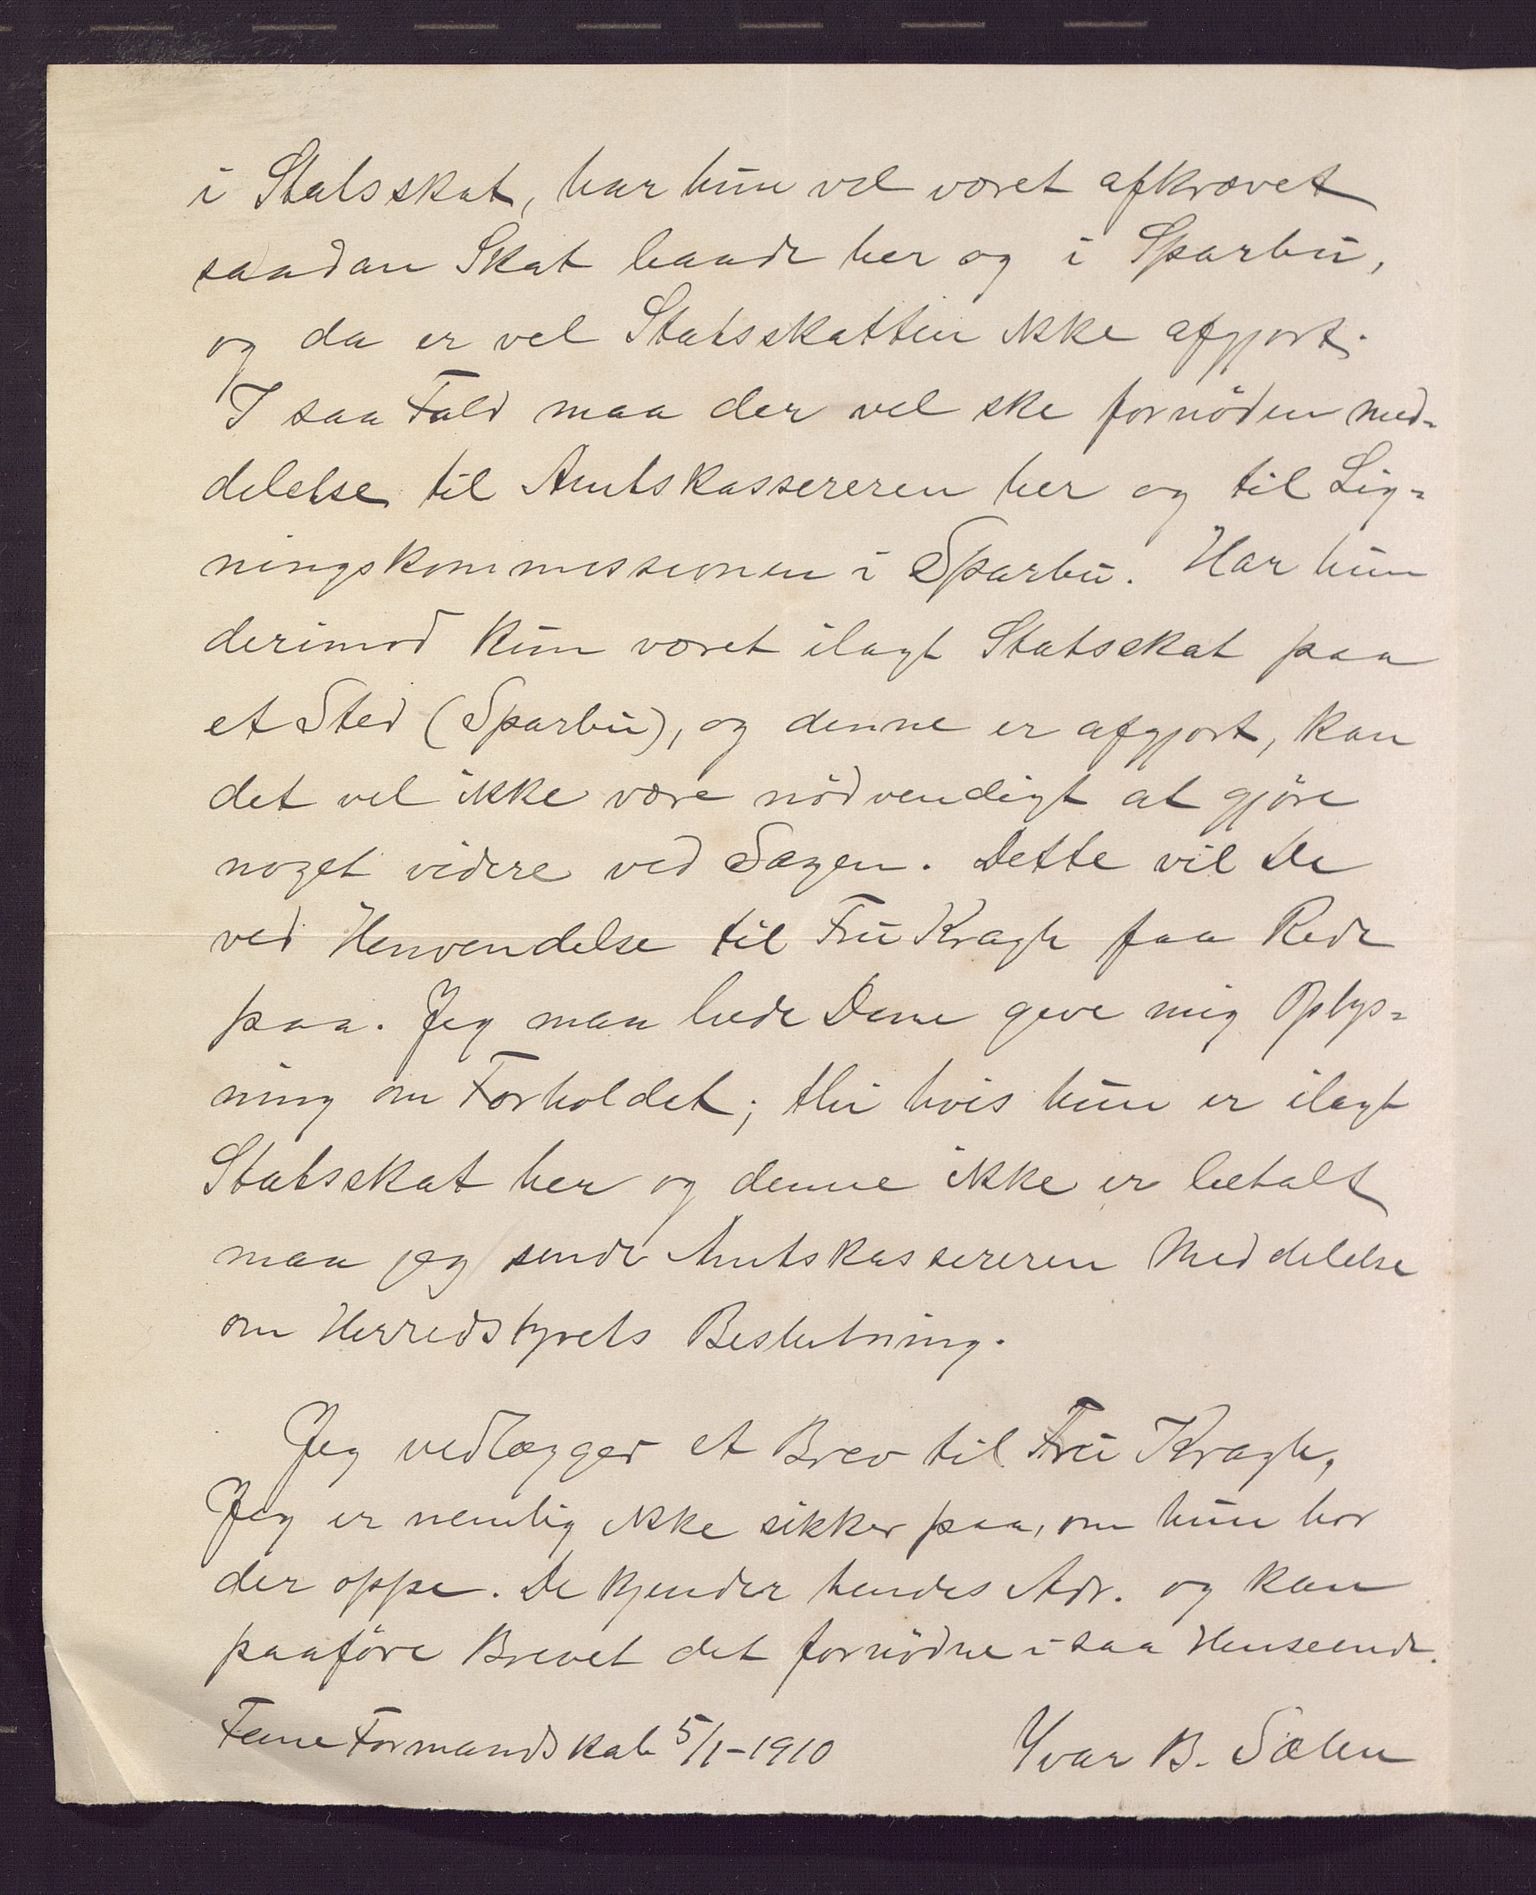 i Statsskat, har hun vel været afkrævet
saadan Skat baade her og i Sparbu,
og da er vel Statsskatten ikke afgjort.
I saa Fald maa der vel ske fornöden Med-
delelse til Amtskassereren her og til Lig-
ningskommissionen i Sparbu. Har hun
derimod kun været ilagt Statsskat paa
et Sted (Sparbu), og denne er afgjort, kan
det vel ikke være nödvendigt at gjöre
noget videre ved Sagen. Dette vil De
ved Henvendelse til Fru Kragh faa Rede
paa. Jeg maa bede Dem give mig Oplys-
ning om Forholdet; thi hvis hun er ilagt
Statsskat her og denne ikke er betalt
maa jeg sende Amtskassereren Meddelelse
om Herredstyrets Beslutning.
Jeg vedlægger et Brev til Fru Kragh,
Jeg er nemlig ikke sikker paa, om hun bor
der oppe. De kjender hendes Adr. og kan
paaföre Brevet det fornödne i saa Henseende.
Formandskab 5/1-1910 Yvar B. Sælen